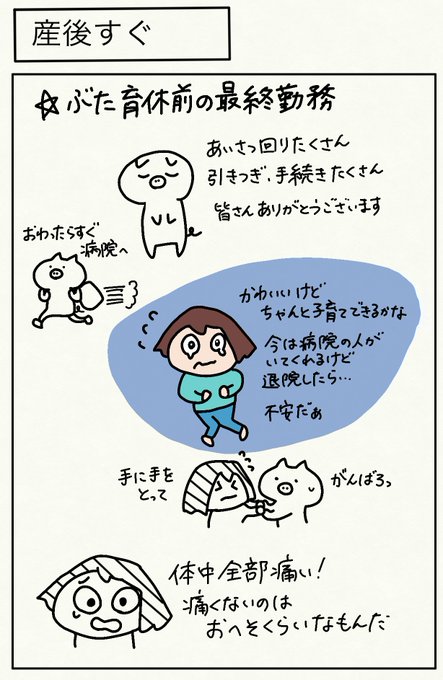 産後すぐ
☆ぶた育休前の最終勤務
あいさつ回りたくさん
引きつぎ、手続きたくさん
皆さんありがとうございます
おわったらすぐ
病院へ
かわいいけど
ちゃんと子育てできるかな
今は病院の人が
いてくれるけど
退院したら…
不安だぁ
手に手を
とって
がんばろっ
体中全部痛い!
痛くないのは
おへそくらいなもんだ